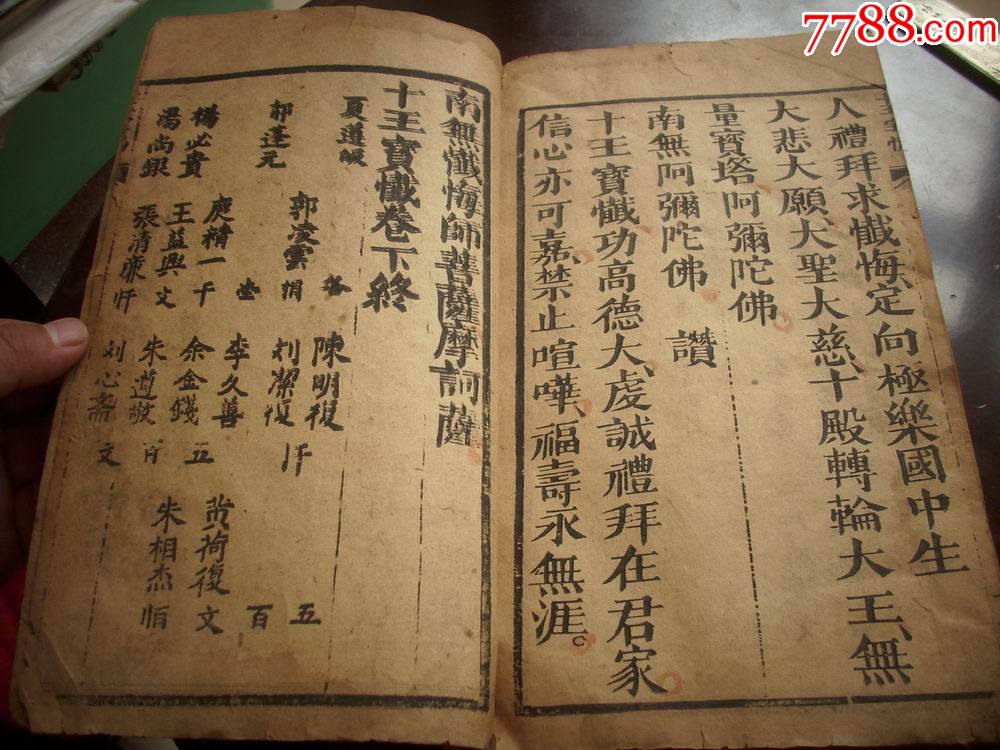 7788.com
人禮拜求懺悔、定向極樂國中生
大悲大願、大聖大慈、十殿轉輪大王、無
量寶塔阿彌陀佛
南無阿彌陀佛　讚
十王寶懺功高德大、虔誠禮拜在君家
信心亦可嘉、禁止喧嘩、福壽永無涯。
南無懺悔師菩薩摩訶薩
十王寶懺卷下終
夏遵
郭蓬元　郭凌雲　陳明復　劉潔復
各　捐　仟　五
庚精一　李久善　黃荷復
壹　百
楊必貴　王益興　余金錢
千　文　五　文
湯尚銀　張清廉　朱遵敬　朱相杰
劉心齋　文